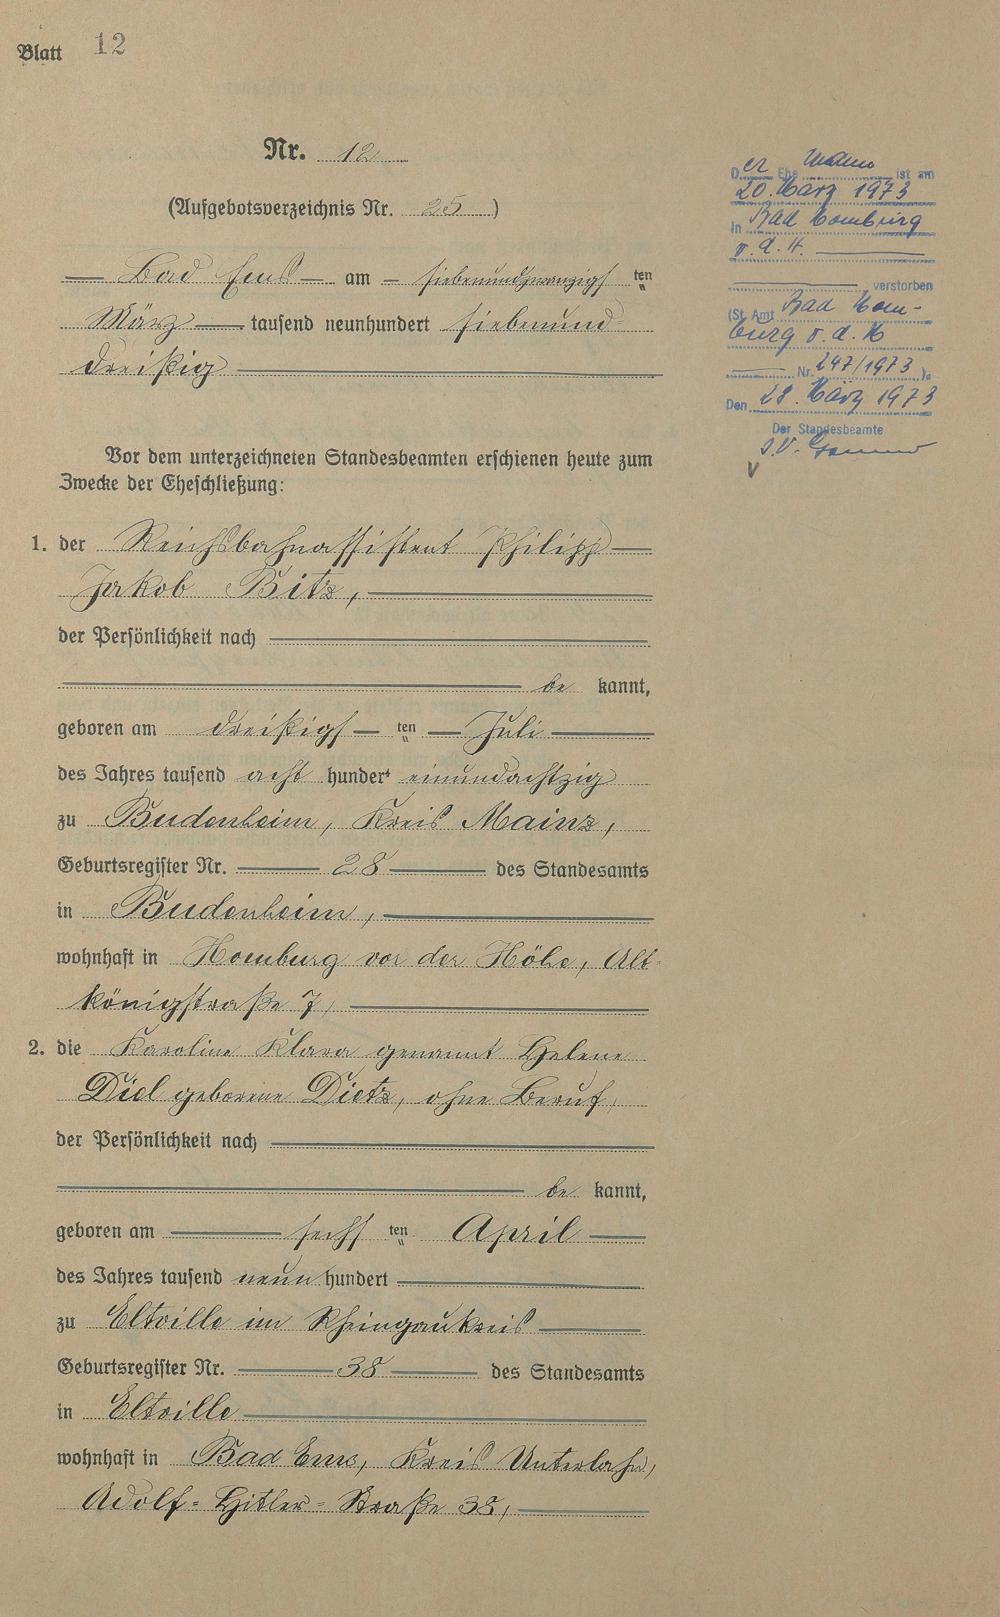 Blatt 12
Nr. 12
(Aufgebotsverzeichnis Nr. 25)
Bad Ems am siebenundzwanzigs ten
März tausend neunhundert siebenund-
dreißig
Vor dem unterzeichneten Standesbeamten erschienen heute zum
Zwecke der Eheschließung:
1. der Reichsbahnassistent Philipp
Jakob Bitz,
der Persönlichkeit nach
be kannt,
geboren am dreißigs ten Juli
des Jahres tausend acht hundert einundachtzig
zu Budenheim, Kreis Mainz,
Geburtsregister Nr. 28 des Standesamts
in Budenheim,
wohnhaft in Homburg vor der Höhe, Alt-
königstraße 7,
2. die Karoline Klara genannt Helene
Diel geborene Dietz, ohne Beruf,
der Persönlichkeit nach
be kannt,
geboren am sechs ten April
des Jahres tausend neun hundert
zu Eltville im Rheingaukreis
Geburtsregister Nr. 38 des Standesamts
in Eltville
wohnhaft in Bad Ems, Kreis Unterlahn,
Adolf-Hitler-Straße 38,
Der Ehemann ist am
20. März 1973
in Bad Homburg
v. d. H.
verstorben
(St. Amt Bad Hom-
burg v. d. H
Nr. 247/1973).
Den 28. März 1973
Der Standesbeamte
I.V.